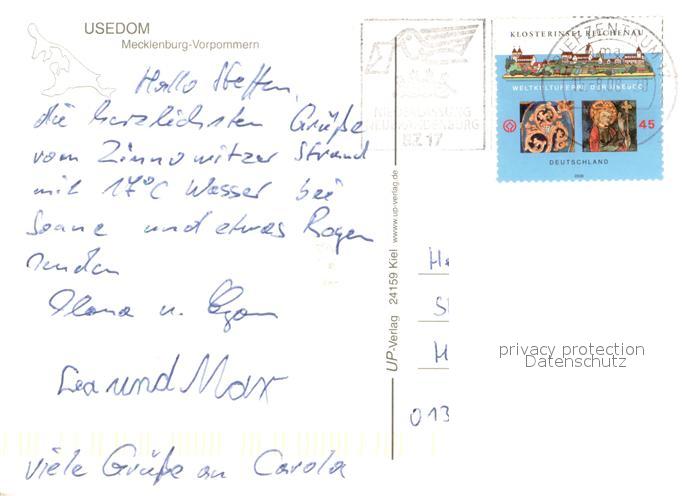 USEDOM
Mecklenburg-Vorpommern
Hallo Steffen,
die herzlichsten Grüße
vom Zinnowitzer Strand
mit 17°C Wasser bei
Sonne und etwas Regen
senden
Ilona u.
Lea und Max
viele Grüße an Carola
UP-Verlag 24159 Kiel www.up-verlag.de
NIEDERLASSUNG
NEUBRANDENBURG
BZ 17
BRIEFZENTRUM
KLOSTERINSEL REICHENAU
WELTKULTURERBE DER UNESCO
45
DEUTSCHLAND
2008
H
S
H
013
privacy protection
Datenschutz